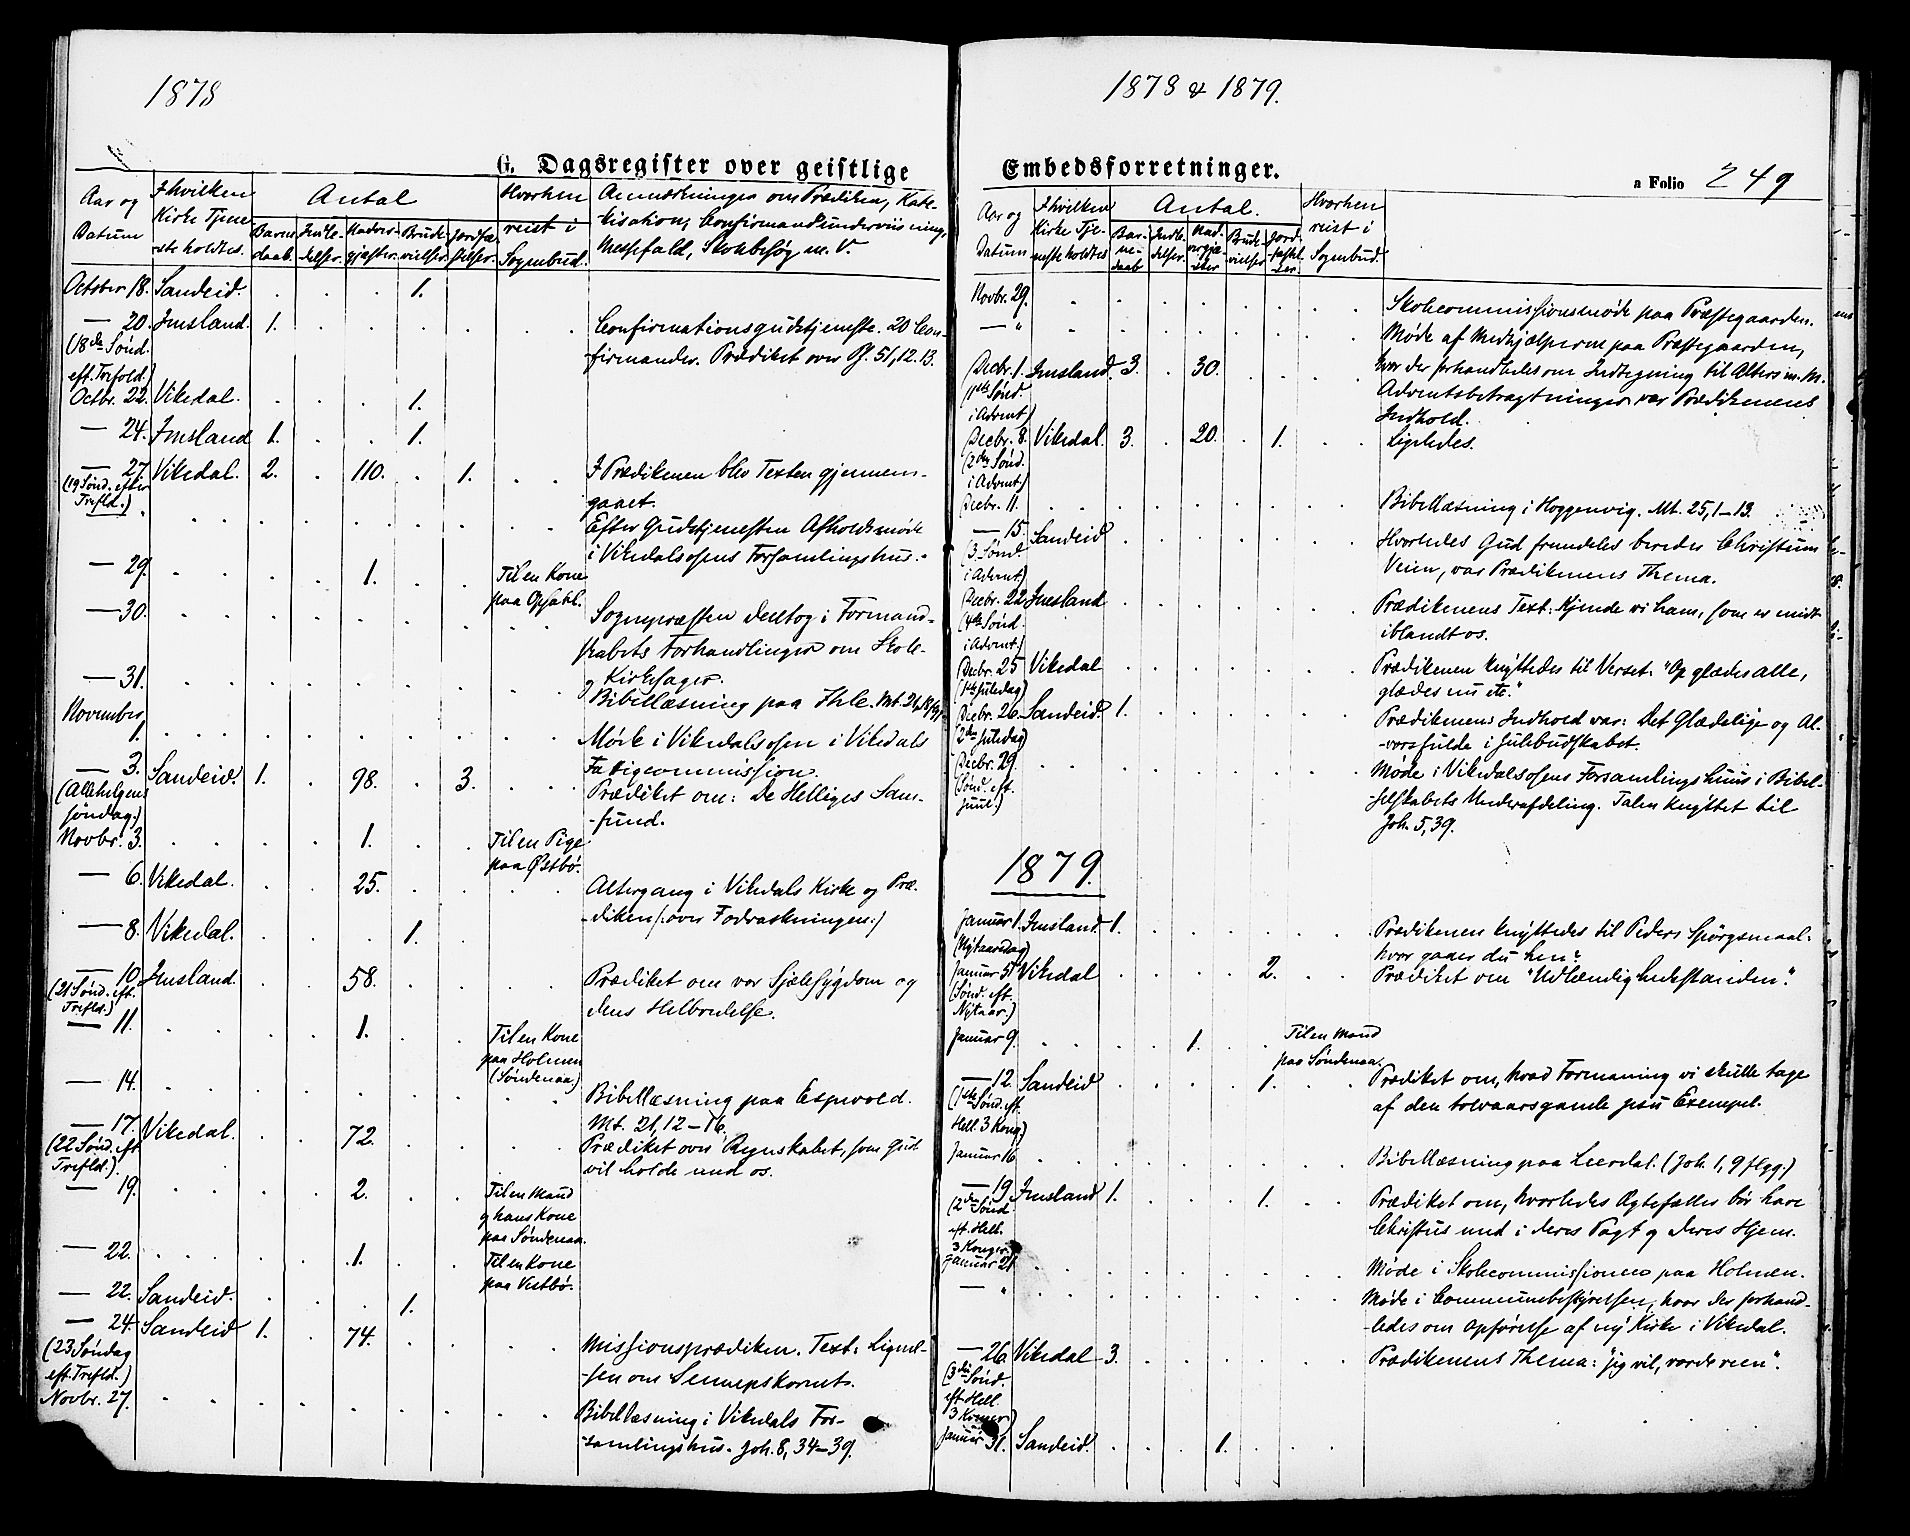 1878
G. Dagsregister over geistlige
Aar og Datum
I hvilken Kirke Tjeneste holdtes.
Antal
Barnedaab.
Indledelser.
Nadvergjæster.
Brudevielser.
Jordfæstelser.
Hvorhen reist i Sognebud.
Anmærkninger om Prædiken, Katekisation, Confirmandundervisning, Messefald, Skolebesøg m. V.
October 18. Sandeid. 1.
— 20. Imsland. 1. Confirmationsgudstjeneste. 20 Con-
(18de Sønd. firmander. Prædiket over Ps. 51, 12. 13.
eft. Trefold.)
Octbr. 22. Vikedal. 1.
— 24. Imsland 1. 1.
— 27. Vikedal. 2. 110. 1. I Prædikenen blev Texten gjennem-
(19 Sønd. efter gaaet.
Trefld.) " Efter Gudstjenesten Afholdsmøde
i Vikedalsosens Forsamlingshus.
— 29. 1. Til en Kone
paa Opsahl.
— 30. Sognepræsten deltog i Formand-
skabets Forhandlinger om Skole-
og Kirkesager.
— 31. Bibellæsning paa Ihle. Mt. 21,
November
1. Møde i Vikedalsosen i Vikedals
Fattigcommission.
— 3. Sandeid. 1. 98. 3. Prædiket om: De Helliges Sam-
(Allehelgens -fund.
søndag.)
Novbr. 3. 1. Til en Pige
paa Østbø.
— 6. Vikedal. 25. Altergang i Vikedals Kirke og Præ-
-diken (: over Fodvaskningen :)
— 8. Vikedal. 1.
— 10. Imsland. 58. Prædiket om vor Sjælesygdom og
(21 Sønd. eft. dens Helbredelse.
Trefld.)
— 11. 1. Til en Kone
paa Holmen
(Søndenaa)
— 14. Bibellæsning paa Espevold.
Mt. 21, 12–16.
— 17. Vikedal. 72. Prædiket over Regnskabet, som Gud
(22 Sønd. eft. vil holde med os.
Trefld.)
— 19. 2. Til en Mand
og hans Kone
paa Søndenaa.
— 22. 1. Til en Kone
paa Vestbø.
— 22. Sandeid. 1.
— 24. Sandeid 1. 74. Missionsprædiken. Text: Lignel-
(23 Søndag -sen om Sennepskornet.
eft. Trefld.)
Novbr. 27. Bibellæsning i Vikedals For-
-samlingshus. Joh. 8, 34–39.
1878 & 1879.
Embedsforretninger.
a Folio 249
Aar og Datum
I hvilken Kirke Tjeneste holdtes
Antal.
Barnedaab
Indledelser.
Nadvergjæster
Brudevielser
Jordfæstelser
Hvorhen reist i Sognebud.
Novbr. 29. Skolecommissionsmøde paa Præstegaarden.
— " Møde af Medhjælperne paa Præstegaarden,
hvor der forhandledes om Indtegning til Alters m. M.
Decbr. 1. Imsland. 3. 30. Adventsbetragtninger var Prædikenens
(1ste Sønd. Indhold.
i Advent)
Decbr. 8. Vikedal. 3. 20. 1. Ligeledes.
(2den Sønd.
i Advent.)
Decbr. 11. Bibellæsning i Hoggenvig. Mt. 25, 1–13.
— 15. Sandeid Hvorledes Gud fremdeles bereder Christum
(3 Sønd. Veien, var Prædikenens Thema.
i Advent)
Decbr. 22 Imsland Prædikenens Text: Kjende vi ham, som er midt
(4de Sønd. iblandt os.
i Advent.)
Decbr. 25 Vikedal Prædikenen knyttedes til Verset: "Op glædes alle,
(1ste Juledag) glædes nu etc."
Decbr. 26. Sandeid. 1. Prædikenens Indhold var: Det Glædelige og Al-
(2den Juledag) -vorsfulde i Julebudskabet.
Decbr. 29. Møde i Vikedalsosens Forsamlingshuus i Bibel-
(Sønd. eft. -selskabets Underafdeling. Talen knyttet til
Juul.) Joh. 5, 39.
1879.
Januar 1. Imsland 1. Prædikenen knyttedes til Peders Spørgsmaal:
(Nytaarsdag) hvor gaaer du hen?
Januar 5. Vikedal 2. Prædiket om "Udlændighedsstanden".
(Sønd. eft.
Nytaar.)
Januar 9. 1. Til en Mand
paa Søndenaa.
— 12. Sandeid 1. Prædiket om, hvad Formaning vi skulle tage
(1ste Sønd. eft. af den tolvaarsgamle Jesu Exempel.
Hell. 3 Kong.)
Januar 16 Bibellæsning paa Leerdal. (Joh. 1, 9 flgg.)
— 19. Imsland 1. 1. Prædiket om, hvorledes Ægtefæller bør have
(2den Sønd. Christus med i deres Pagt og deres Hjem.
eft. Hell.
3 Konger.)
Januar 21. Møde i Skolecommissionen paa Holmen.
— " Møde i Communebestyrelsen, hvor der forhand-
-ledes om Opførelse af ny Kirke i Vikedal.
— 26. Vikedal 3. Prædikenens Thema: "jeg vil, vorde reen".
(3die Sønd.
eft. Hell.
3 Konger)
Januar 31. Sandeid. 1.